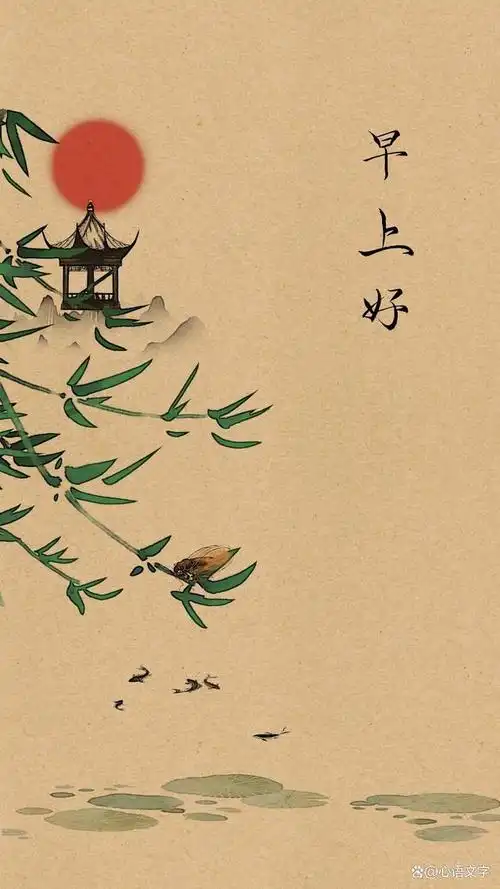 早上好
@心语文字